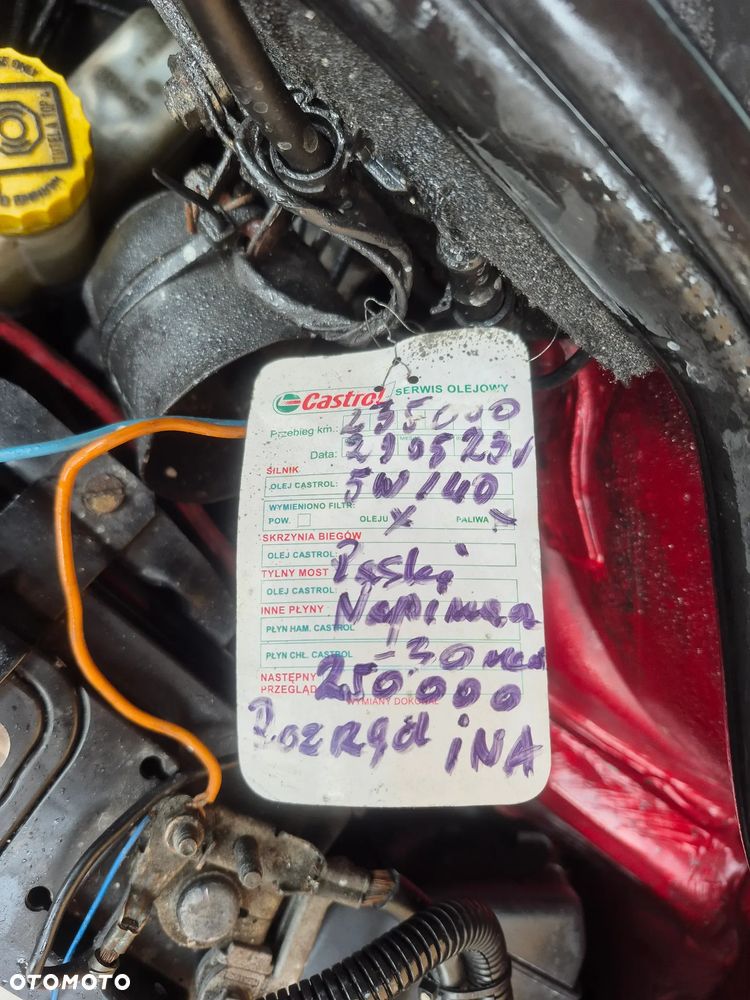 Castrol SERWIS OLEJOWY
Przebieg km. 235000
Data: 290523r
SILNIK
OLEJ CASTROL: 5W/40
WYMIENIONO FILTR:
POW. OLEJU X PALIWA
SKRZYNIA BIEGÓW
OLEJ CASTROL: Paski
TYLNY MOST
OLEJ CASTROL:
INNE PŁYNY
PŁYN HAM. CASTROL
PŁYN CHŁ. CASTROL -30
NASTĘPNY
PRZEGLĄD 250.000
WYMIANY DOKONAŁ
Rozrząd iNA
OTOMOTO